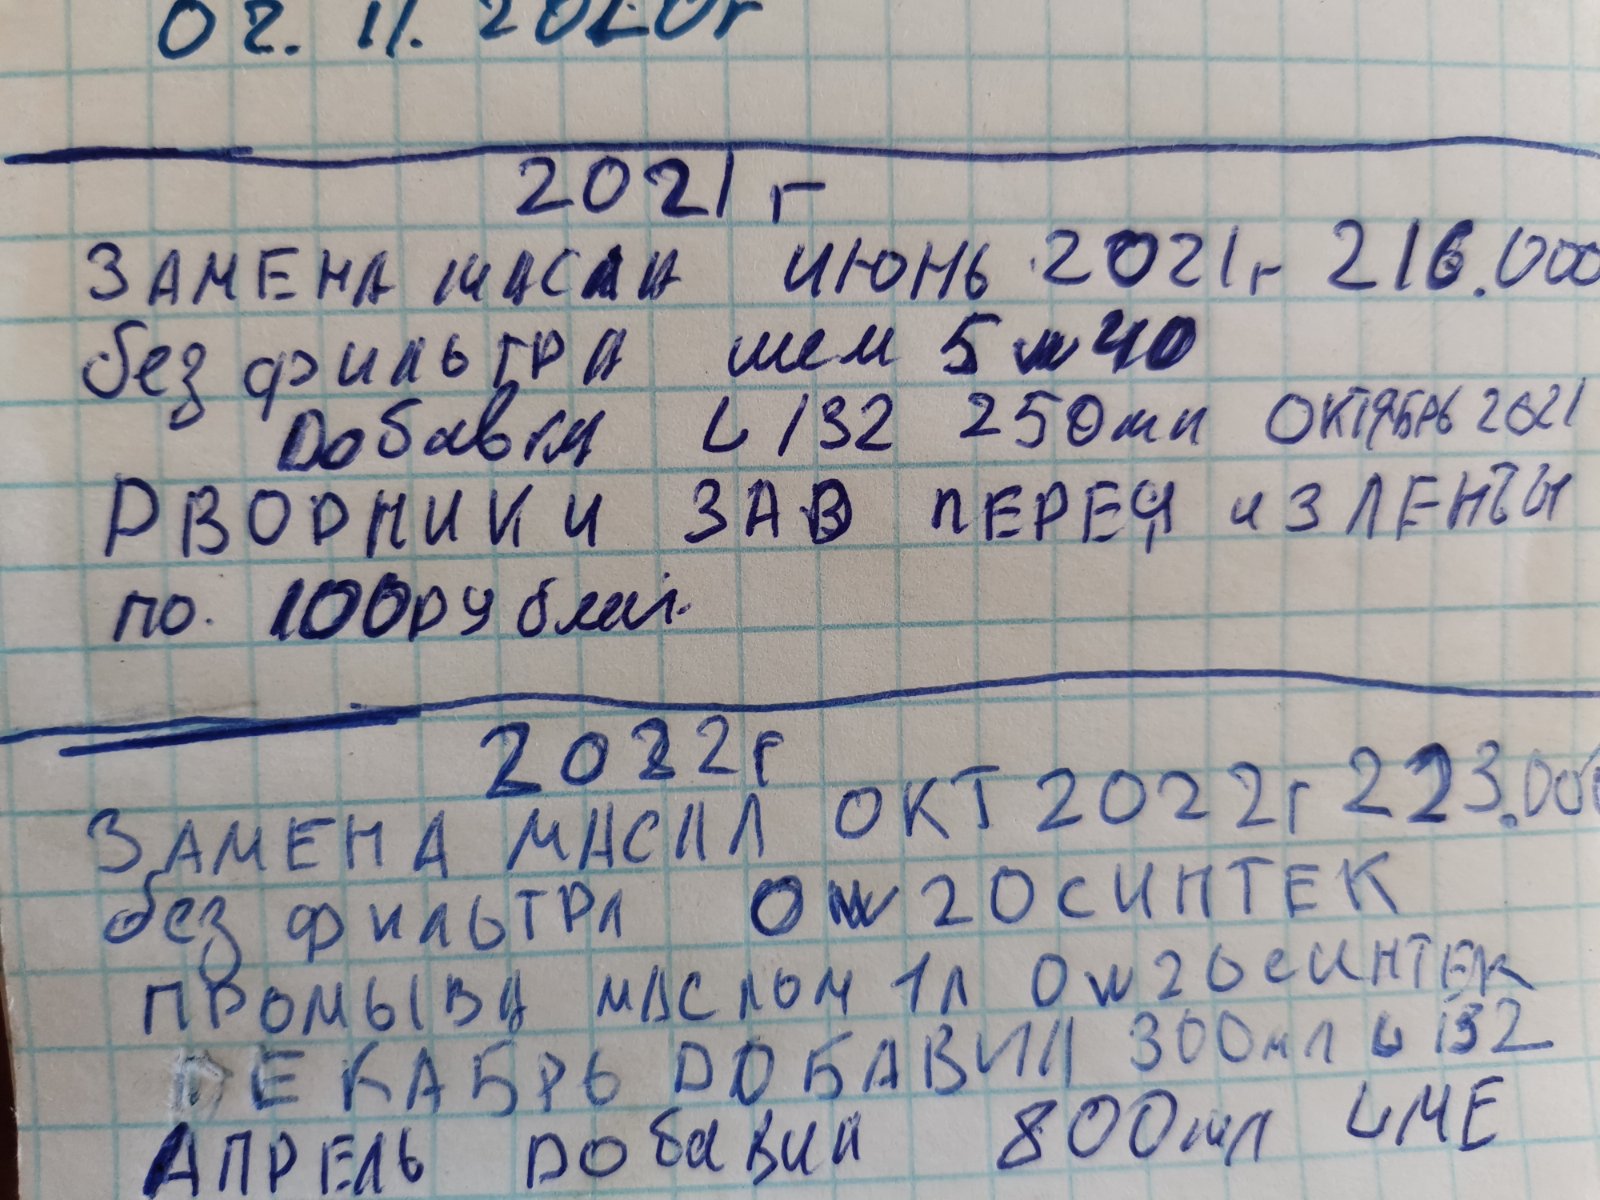 02.11.2020г
2021г
ЗАМЕНА МАСЛА ИЮНЬ 2021г 216.000
без фильтра шел 5w40
Добавка L132 250мл ОКТЯБРЬ 2021
ДВОРНИКИ ЗАВ ПЕРЕД ИЗ ЛЕНТЫ
по. 100рублей.
2022г
ЗАМЕНА МАСЛА ОКТ 2022г 223.000
без фильтра 0w20СИНТЕК
ПРОМЫВА МАСЛОМ 1л 0w20СИНТЕК
ДЕКАБРЬ ДОБАВИЛ 300мл L132
АПРЕЛЬ Добавил 800мл LME